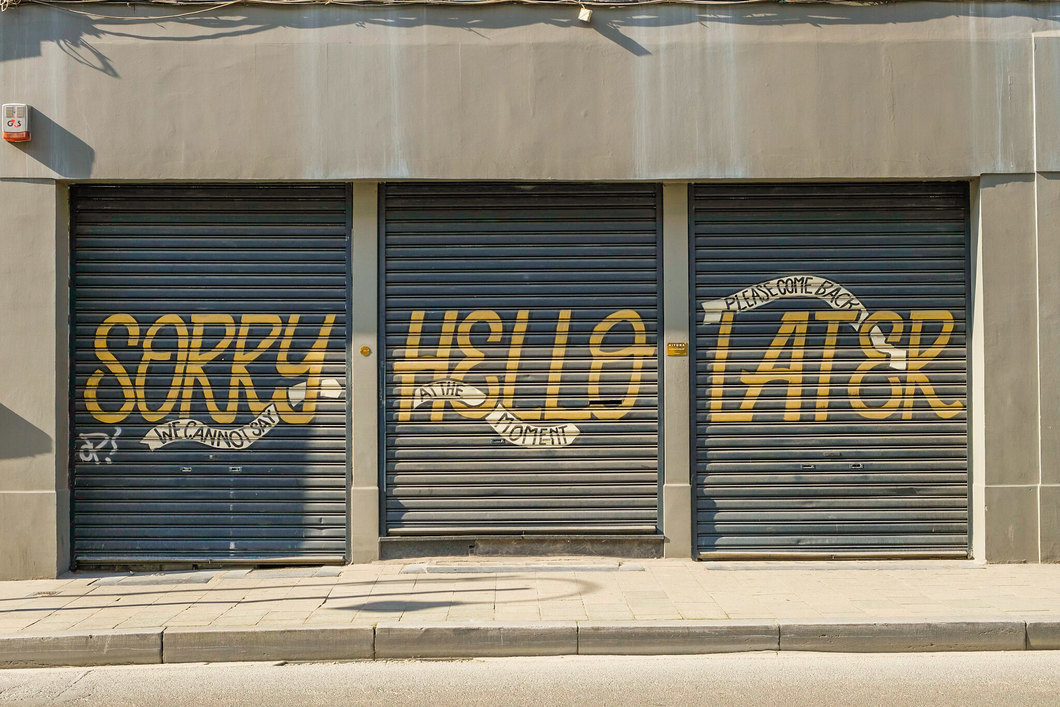 G4S
SORRY
WE CANNOT SAY
HELLO
AT THE
MOMENT
PLEASE COME BACK
LATER